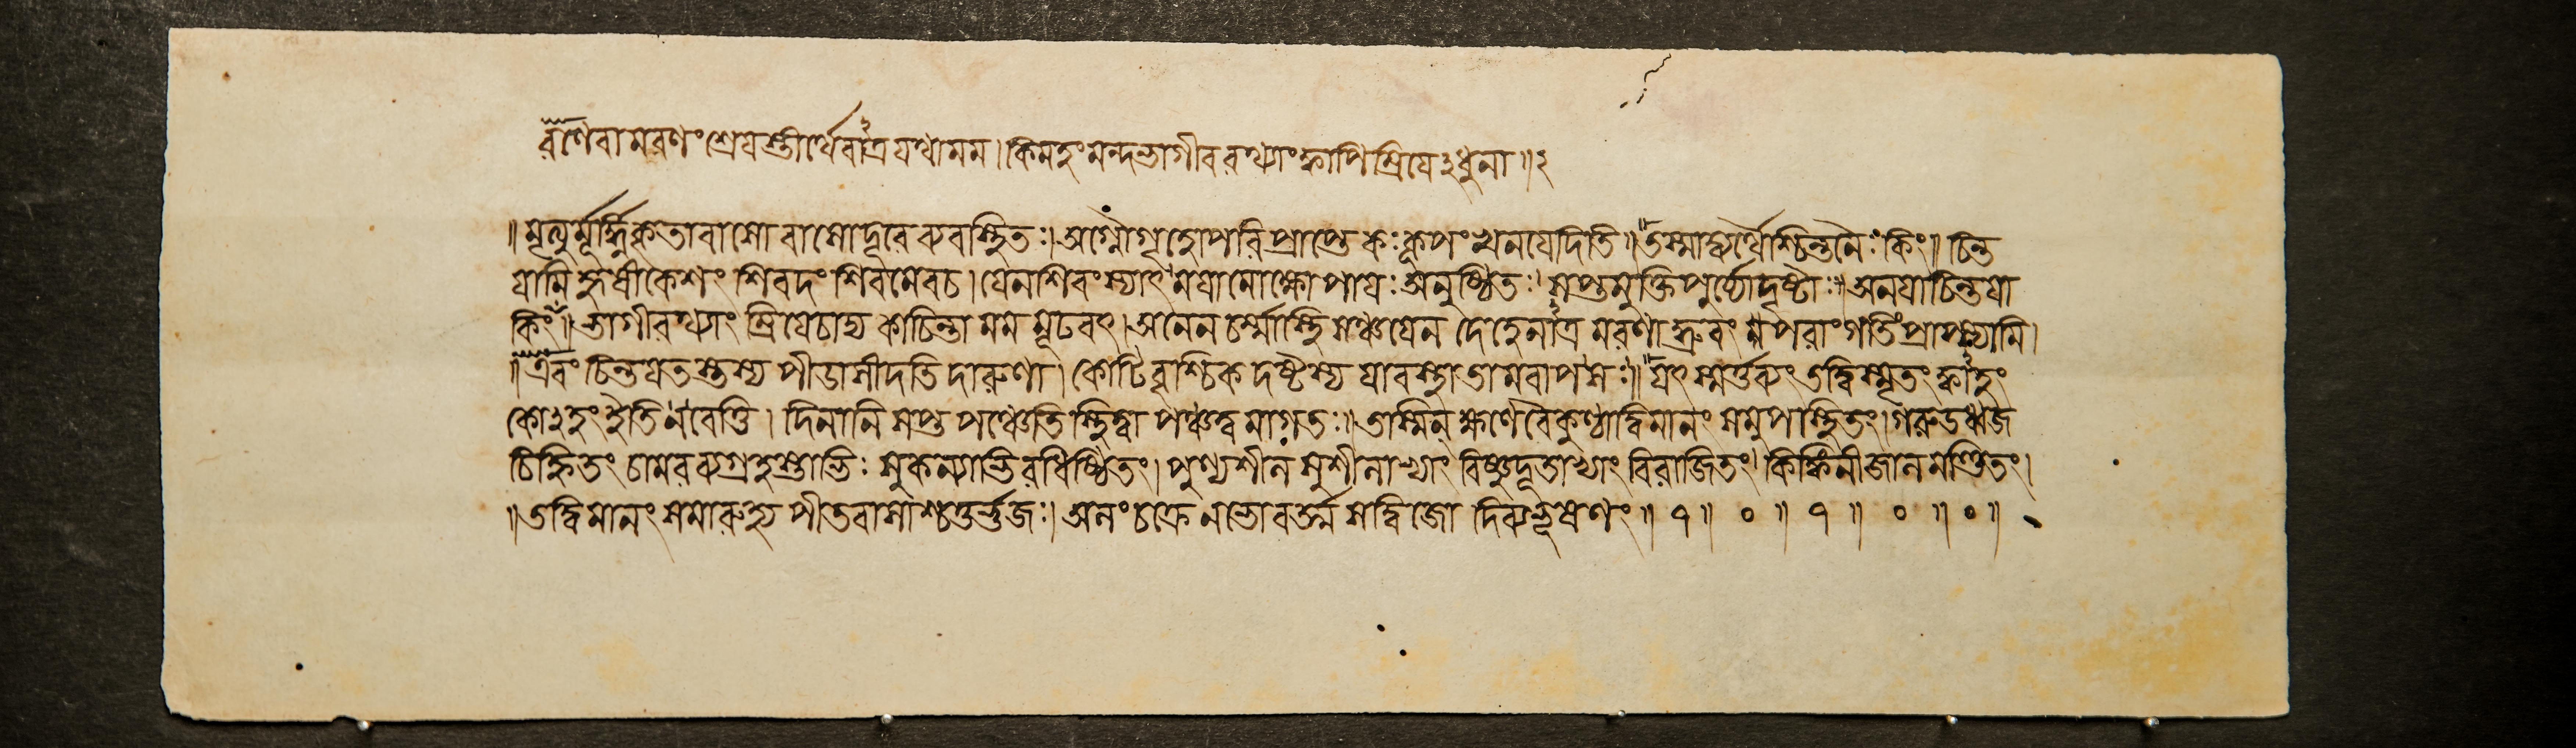 রণেবামরণংশ্রেয়স্তীর্থেবাত্রযথামম। কিমহংমন্দভাগীবরথ্যাংক্বাপিম্রিয়েঽধুনা॥২
॥মৃত্যুর্মূর্দ্ধ্নিকৃতাবাসোবাসোদূরেব্যবস্থিতঃ। অগ্নৌগৃহোপরিপ্রাপ্তেকঃকূপংখনয়েদিতি॥তস্মাদ্ব্যর্থৈশ্চিন্তনৈঃকিং॥চিন্ত
য়ামিহৃষীকেশং শিবদং শিবমেবচ। যেনশিবংস্যাৎ ময়ামোক্ষোপায়ঃঅনুষ্ঠিতঃ সপ্তমুক্তিপুর্য্যোদৃষ্টাঃ॥অনয়াচিন্তয়া
কিং॥ভাগীরথ্যাং ম্রিয়েচাদ্য কাচিন্তা মম মূঢবৎ। অনেন চর্ম্মাস্থিসঞ্চয়েন দেহেনাত্র মরণাদ্ধ্রুবং সপরাংগতিংপ্রাপ্স্যামি।
॥এবংচিন্তয়তস্তস্য পীডাসীদতিদারুণা। কোটিবৃশ্চিকদষ্টস্য যাবস্থাতামবাপসঃ॥যৎস্মর্ত্তব্যং তদ্বিস্মৃতংক্বাহং
কোঽহংবৈতিনবেত্তি। দিনানিসপ্তপঞ্চেতিস্থিত্বাপঞ্চত্বমাগতঃ॥তস্মিন্ক্ষণেবৈকুণ্ঠাদ্বিমানংসমুপস্থিতং।গরুডধ্বজ
চিহ্নিতং চামরব্যগ্রহস্তাভিঃসুকন্যাভিরধিষ্ঠিতং। পুণ্যশীলসুশীলাখ্যাং বিষ্ণুদূতাভ্যাং বিরাজিতং কিঙ্কিনীজালমণ্ডিতং।
॥তদ্বিমানং সমারুহ্য পীতবাসাশ্চতুর্ভুজঃ। অলংচক্রেনভোবর্ত্মসদ্বিজো দিব্যভূষণং॥ ৭॥ ০॥ ৭॥ ০॥০॥